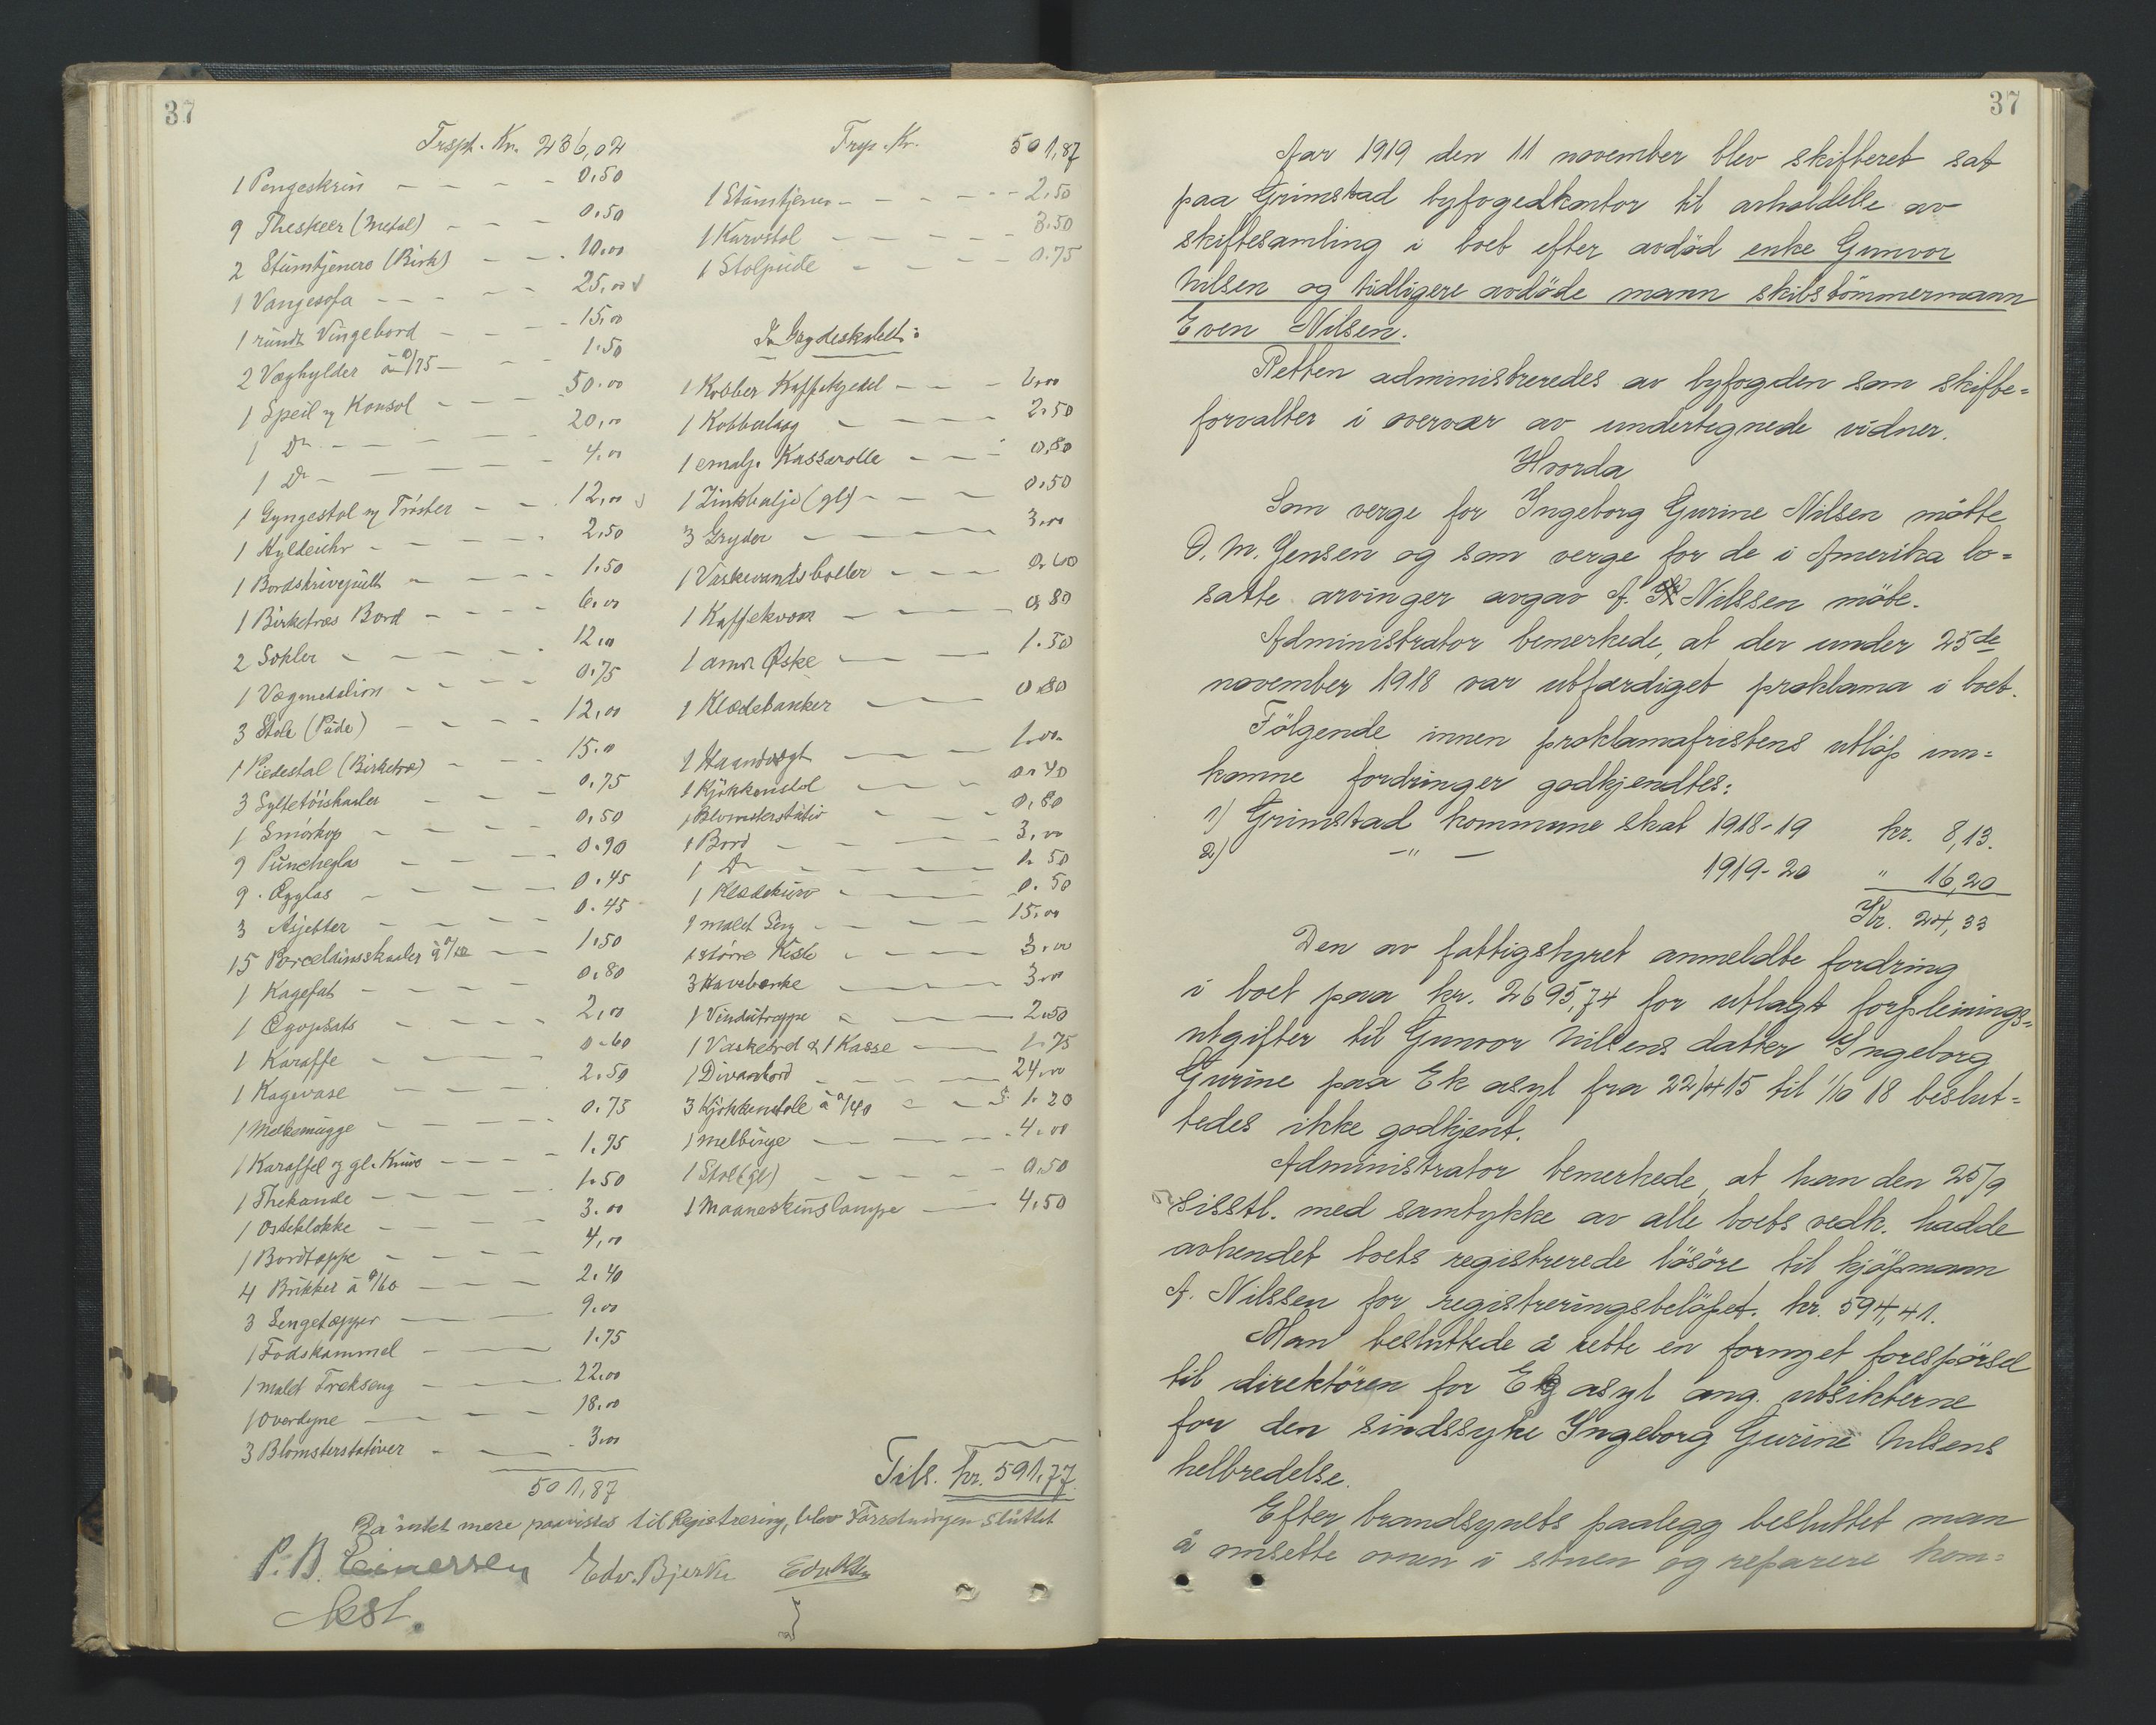 37
Trsp. Kr. 236,02
1 Pengeskrin - - - - 0.50
9 Theskeer (Metal) - - - 0.50
2 Stumtjenere (Birk) - - 10.00
1 Vangesofa - - - - 25,00
1 rundt Vingebord - - - 15.00
2 Væghylder à 0/75 - - - 1.50
1 Speil og Konsol - - - 50.00
1 Do - - - - 20,00
1 Do - - - - 4.00
1 Gyngestol og Trøster - - 12,00
1 Hyldeuhr - - - - 2.50
1 Bordskrivepult - - - 1.50
1 Birketræs Bord - - - 6.00
2 Sohler - - - - 12.00
1 Vægmedalion - - - - 0.75
3 Stole (Pude) - - - - 12,00
1 Piedestal (Birketræ) - - - 15.00
3 Syltetöiskaaler - - - 0.75
1 Smörkop - - - - 0.50
9 Puncheglas - - - 0.90
9 Ægglas - - - - 0.45
3 Asjetter - - - - 0.45
15 Porcelainsskaaler à 0/10 - - 1.50
1 Kagefat - - - - 0.80
1 Ægopsats - - - - 2,00
1 Karaffe - - - - 0.60
1 Kagevase - - - - 2.50
1 Melkemugge - - - - 0.75
1 Karaffel og gl. Kurv - - - 1.75
1 Thekande - - - - 1.50
1 Osteklokke - - - - 3.00
1 Bordtæppe - - - - 4,00
4 Brikker à 0/60 - - - 2.40
3 Sengetæpper - - - 9.00
1 Fodskammel - - - 1.75
1 malet Trækseng - - - 22.00
1 Overdyne - - - - 18.00
3 Blomsterstativer - - - 3.00
501,87
Trsp. Kr. 501,87
1 Stumtjener - - - - 2.50
1 Kurvstol - - - - 3.50
1 Stolpude - - - - 0.75
I Grydeskabet:
1 Kobber Kaffekjedel - - - 2.00
1 Kobberlaag - - - - 2.50
1 emalj. Kasserolle - - - 0,80
1 Zinkbalje (gl) - - - 0.50
3 Gryder - - - - 3.00
1 Vaskevandsboller - - - 0.60
1 Kaffekvern - - - 0.80
1 Øske - - - 1.50
1 Klædebanker - - - 0.80
1 Haandvægt - - - 1.00
1 Kjökkenstol - - - 0.40
1 Blomsterstativ - - - 0.80
1 Bord - - - - 3.00
1 Do - - - - 1.50
1 Klædekurv - - - 0.50
1 malet Seng - - - 15.00
1 större Kiste - - - 3.00
3 Havebænke - - - 3.00
1 Vindutrappe - - - 2.50
1 Vaskebræt & 1 Kasse - - 1.75
1 Divanbord - - - 24.00
3 Kjökkenstole à 0/40 - - 1.20
1 Melbinge - - - - 4.00
1 Stol (gl) - - - - 0.50
1 Maaneskinslampe - - 4.50
Tils. kr. 591,77
Da intet mere paavistes til Registrering, blev Forretningen sluttet
P. B. Einersen Edv. Bjerke Edv. Olsen
Aest.
37
Aar 1919 den 11 november blev skifteret sat
paa Grimstad byfogedkontor til avholdelse av
skiftesamling i boet efter avdöd enke Gunvor
Nilsen og tidligere avdöde mann skibstömmermann
Even Nilsen.
Retten administreredes av byfogden som skifte=
forvalter i overvær av undertegnede vidner.
Hvorda
Som verge for Ingeborg Gurine Nilsen mötte
O. M. Jensen og som verge for de i Amerika bo=
satte arvinger avgav A. Nilssen möte.
Administrator bemerkede, at der under 25de
november 1918 var utfærdiget proklama i boet.
Fölgende innen proklamafristens utlöp inn=
komne fordringer godkjendtes:
1) Grimstad kommune skat 1918-19 kr. 8,13.
2) -"- 1919-20 " 16,20
Kr. 24,33
Den av fattigstyret anmeldte fordring
i boet paa kr. 2695,74 for utlagt forpleinings=
utgifter til Gunvor Nilsens datter Ingeborg
Gurine paa Ek asyl fra 22/4 15 til 1/10 18 beslut=
tedes ikke godkjent.
Administrator bemerkede, at han den 25/9
sisstl. med samtykke av alle boets vedk. hadde
avhendet boets registrerede lösöre til kjöpmann
A. Nilssen for registreringsbelöpet kr. 594,41.
Man besluttede å rette en fornyet forespörsel
til direktören for Eg asyl ang. utsikterne
for den sindssyke Ingeborg Gurine Nilsens
helbredelse.
Efter brandsynets paalegg besluttet man
å omsette ovnen i stuen og reparere kom=